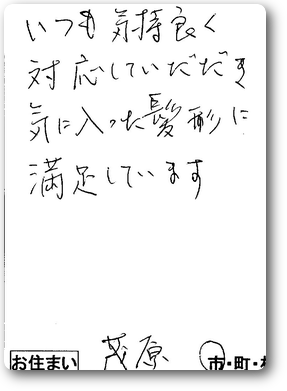 いつも気持良く
対応していただき
気に入った髪形に
満足しています
お住まい 茂原 市・町・村